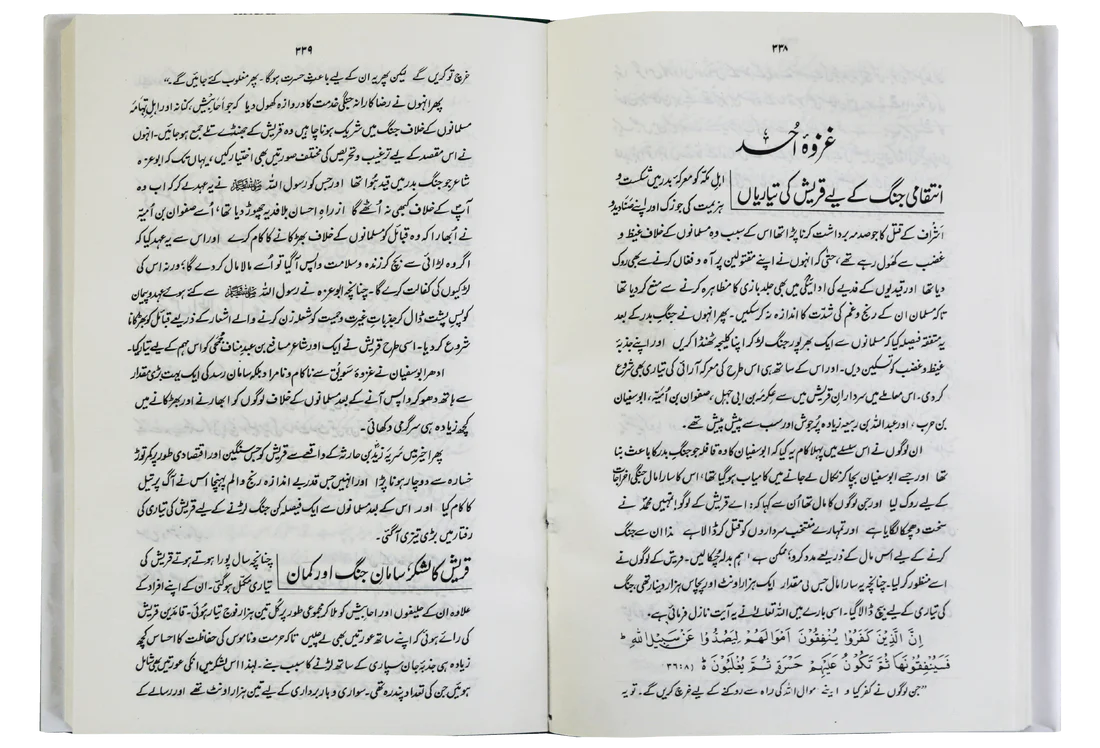 ۳۳۸
غزوۂ اُحد
انتقامی جنگ کے لیے قریش کی تیاریاں
اہلِ مکہ کو معرکۂ بدر میں شکست و
ہزیمت کی جو زک اور اپنے صنادید و
اشراف کے قتل کا جو صدمہ برداشت کرنا پڑا تھا اس کے سبب وہ مسلمانوں کے خلاف غیظ و
غضب سے کھول رہے تھے، حتیٰ کہ انہوں نے اپنے مقتولین پر آہ و فغاں کرنے سے بھی روک
دیا تھا اور قیدیوں کے فدیے کی ادائیگی میں بھی جلد بازی کا مظاہرہ کرنے سے منع کر دیا تھا
تاکہ مسلمان ان کے رنج و غم کی شدّت کا اندازہ نہ کرسکیں۔ پھر انہوں نے جنگِ بدر کے بعد
یہ متفقہ فیصلہ کیا کہ مسلمانوں سے ایک بھرپور جنگ لڑ کر اپنا کلیجہ ٹھنڈا کریں اور اپنے جذبۂ
غیظ و غضب کو تسکین دیں۔ اور اس کے ساتھ ہی اس طرح کی معرکہ آرائی کی تیاری بھی شروع
کر دی۔ اس معاملے میں سردارانِ قریش میں سے عکرمہ بن ابی جہل، صفوان بن اُمیّہ، ابوسفیان
بن حرب، اور عبداللہ بن ربیعہ زیادہ پُرجوش اور سب سے پیش پیش تھے۔
ان لوگوں نے اس سلسلے میں پہلا کام یہ کیا کہ ابوسفیان کا وہ قافلہ جو جنگِ بدر کا باعث بنا
تھا اور جسے ابوسفیان بچا کر نکال لے جانے میں کامیاب ہوگیا تھا، اس کا سارا مال جنگی اخراجات
کے لیے روک لیا اور جن لوگوں کا مال تھا اُن سے کہا کہ: اے قریش کے لوگو! تمہیں محمدؐ نے
سخت دھچکا لگایا ہے اور تمہارے منتخب سرداروں کو قتل کر ڈالا ہے لہٰذا ان سے جنگ
کرنے کے لیے اس مال کے ذریعے مدد کرو؛ ممکن ہے ہم بدلہ چکا لیں۔ قریش کے لوگوں نے
اسے منظور کرلیا۔ چنانچہ یہ سارا مال جس کی مقدار ایک ہزار اونٹ اور پچاس ہزار دینار تھی، جنگ
کی تیاری کے لیے بیچ ڈالا گیا۔ اسی بارے میں اللہ تعالیٰ نے یہ آیت نازل فرمائی ہے۔
اِنَّ الَّذِیْنَ کَفَرُوْا یُنْفِقُوْنَ اَمْوَالَهُمْ لِیَصُدُّوْا عَنْ سَبِیْلِ اللّٰهِ ؕ
فَسَیُنْفِقُوْنَهَا ثُمَّ تَکُوْنُ عَلَیْهِمْ حَسْرَةً ثُمَّ یُغْلَبُوْنَ ؕ (۸:۳۶)
”جن لوگوں نے کفر کیا وہ اپنے اموال اللہ کی راہ سے روکنے کے لیے خرچ کریں گے۔ تو یہ
۳۳۹
خرچ تو کریں گے لیکن پھر یہ ان کے لیے باعثِ حسرت ہوگا۔ پھر مغلوب کئے جائیں گے۔“
پھر انہوں نے رضاکارانہ جنگی خدمت کا دروازہ کھول دیا کہ جو احابیش، کنانہ اور اہلِ تہامہ
مسلمانوں کے خلاف جنگ میں شریک ہونا چاہیں وہ قریش کے جھنڈے تلے جمع ہو جائیں۔ انہوں
نے اس مقصد کے لیے ترغیب و تحریص کی مختلف صورتیں بھی اختیار کیں، یہاں تک کہ ابوعزہ
شاعر جو جنگِ بدر میں قید ہوا تھا اور جس کو رسول اللہ ﷺ نے یہ عہد لے کر کہ اب وہ
آپؐ کے خلاف کبھی نہ اُٹھے گا ازراہِ احسان بلا فدیہ چھوڑ دیا تھا، اُسے صفوان بن اُمیّہ
نے اُبھارا کہ وہ قبائل کو مسلمانوں کے خلاف بھڑکانے کا کام کرے اور اس سے یہ عہد کیا کہ
اگر وہ لڑائی سے بچ کر زندہ و سلامت واپس آگیا تو اُسے مالا مال کر دے گا؛ ورنہ اس کی
لڑکیوں کی کفالت کرے گا۔ چنانچہ ابوعزہ نے رسول اللہ ﷺ سے کئے ہوئے عہد و پیمان
کو پسِ پشت ڈال کر جذباتِ غیرت و حمیت کو شعلہ زن کرنے والے اشعار کے ذریعے قبائل کو بھڑکانا
شروع کر دیا۔ اسی طرح قریش نے ایک اور شاعر مسافع بن عبد مناف جمحی کو اس مہم کے لیے تیار کیا۔
ادھر ابوسفیان نے غزوۂ سویق سے ناکام و نامراد بلکہ سامانِ رسد کی ایک بہت بڑی مقدار
سے ہاتھ دھو کر واپس آنے کے بعد مسلمانوں کے خلاف لوگوں کو ابھارنے اور بھڑکانے میں
کچھ زیادہ ہی سرگرمی دکھائی۔
پھر اخیر میں سریۂ زیدؓ بن حارثہ کے واقعے سے قریش کو جس سنگین اور اقتصادی طور پر کمر توڑ
خسارہ سے دوچار ہونا پڑا اور انہیں جس قدر بے اندازہ رنج و الم پہنچا اس نے آگ پر تیل
کا کام کیا اور اس کے بعد مسلمانوں سے ایک فیصلہ کن جنگ لڑنے کے لیے قریش کی تیاری کی
رفتار میں بڑی تیزی آگئی۔
قریش کا لشکر، سامانِ جنگ اور کمان
چنانچہ سال پورا ہوتے ہوتے قریش کی
تیاری مکمل ہوگئی۔ ان کے اپنے افراد کے
علاوہ ان کے حلیفوں اور احابیش کو ملا کر مجموعی طور پر کل تین ہزار فوج تیار ہوئی۔ قائدینِ قریش
کی رائے ہوئی کہ اپنے ساتھ عورتیں بھی لے چلیں تاکہ حرمت و ناموس کی حفاظت کا احساس کچھ
زیادہ ہی جذبۂ جان سپاری کے ساتھ لڑنے کا سبب بنے۔ لہٰذا اس لشکر میں ان کی عورتیں بھی شامل
ہوئیں جن کی تعداد پندرہ تھی۔ سواری و باربرداری کے لیے تین ہزار اونٹ تھے اور رسالے کے